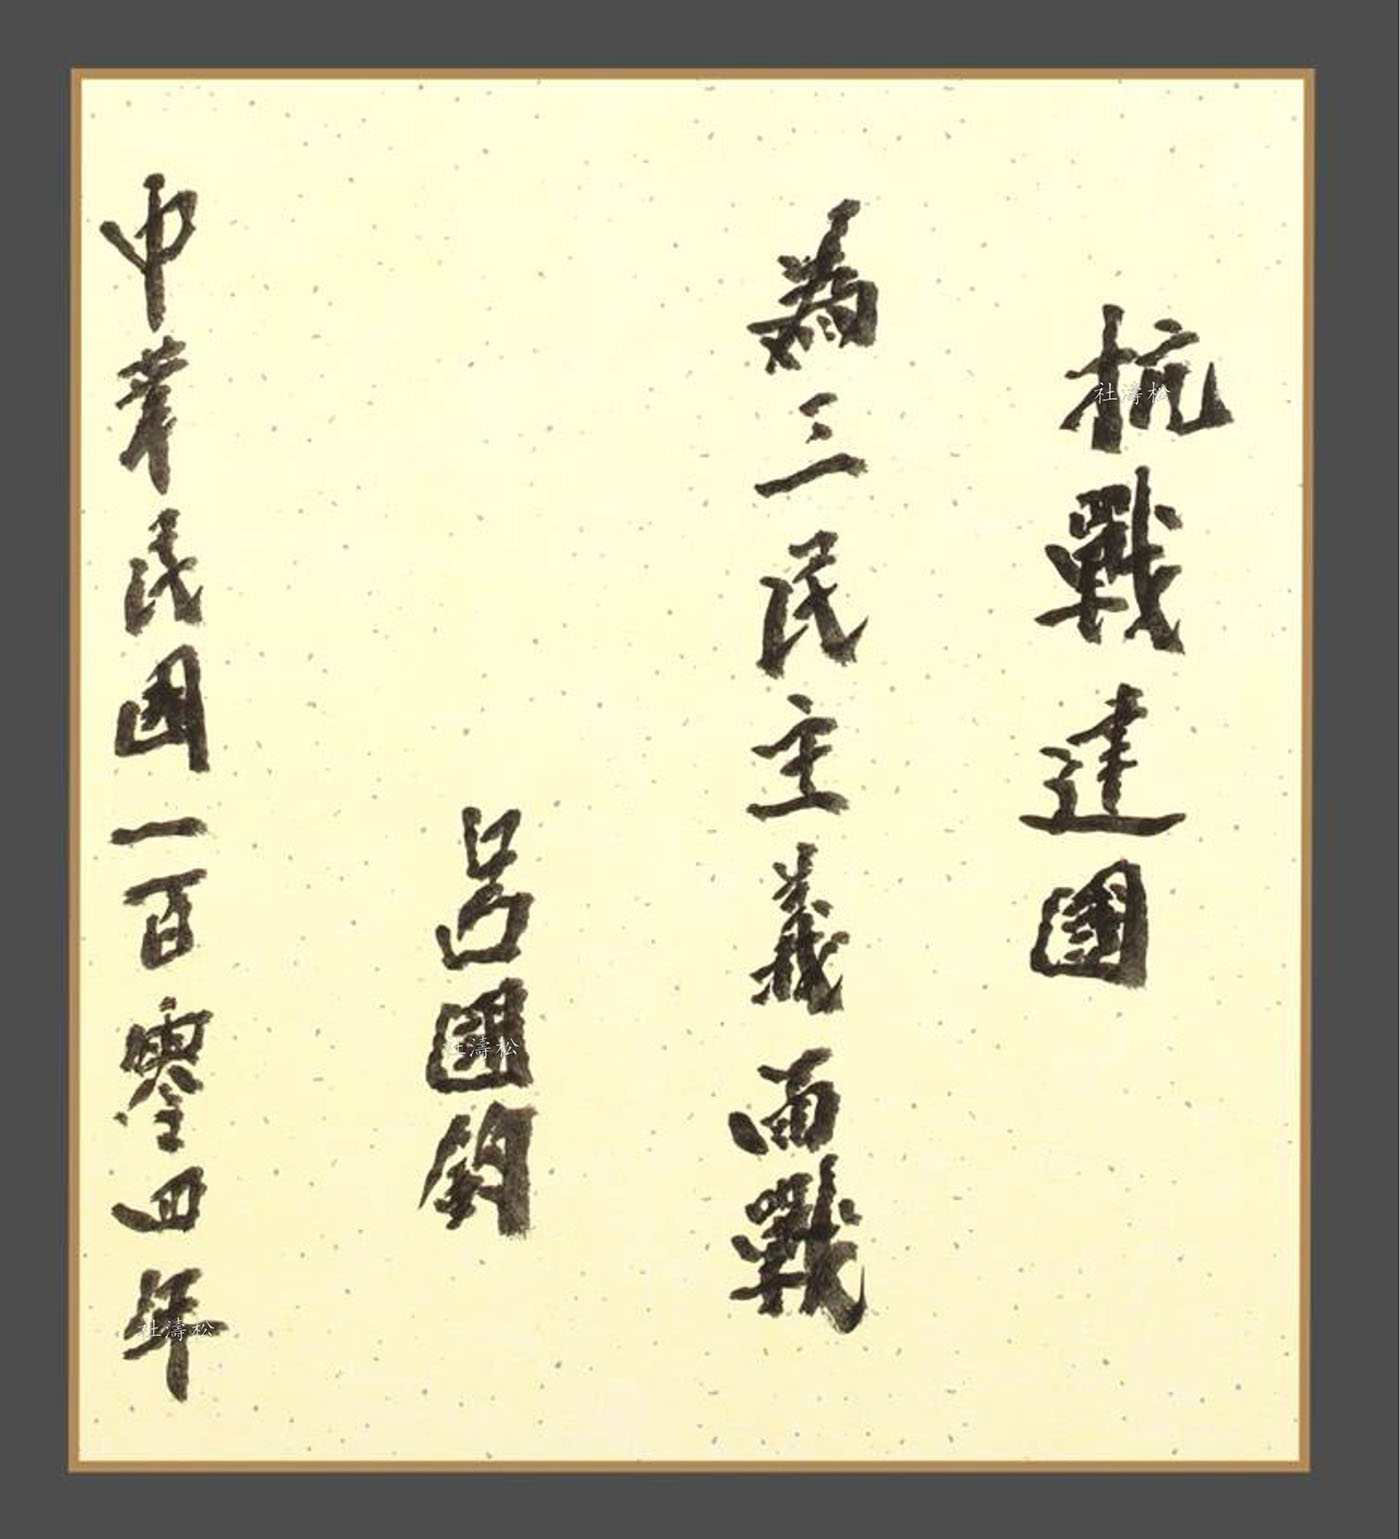 抗戰建國
為三民主義而戰
呂國鈞
中華民國一百零四年
松濤社
松濤社
松濤社